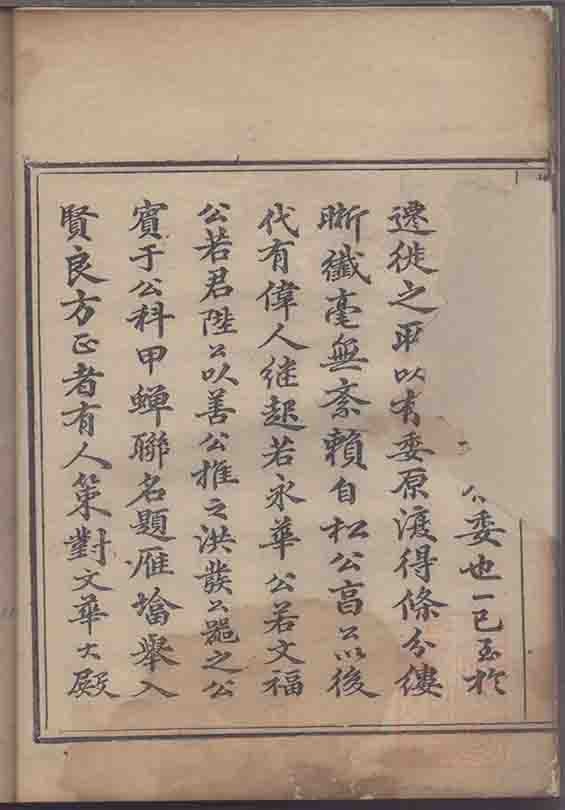 委也一已至於
遷徙之以有委原渡得條分縷
晰纖毫無紊賴自松公高公以後
代有偉人继起若永華公若文福
公若君陛公以善公推之洪發公器之公
賓于公科甲蟬聯名題雁塔舉入
賢良方正者有人策對文華大殿